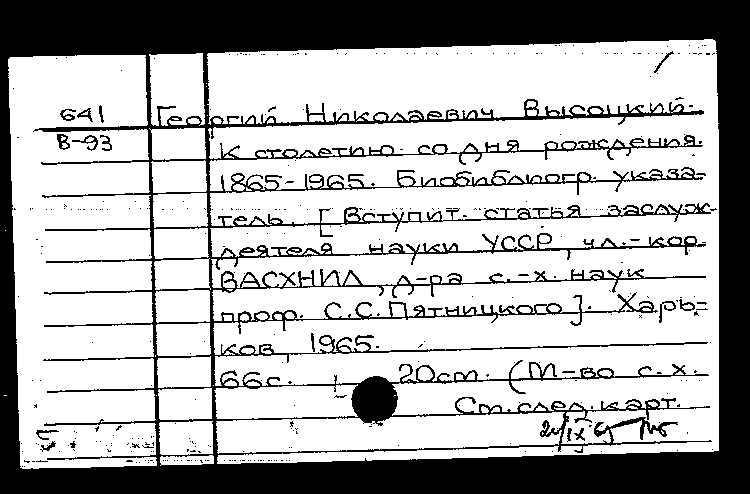 641 Георгий Николаевич Высоцкий.
В-93 К столетию со дня рождения.
1865-1965. Библиогр. указа-
тель. [Вступит. статья заслуж.
деятеля науки УССР, чл.-кор.
ВАСХНИЛ, д-ра с.-х. наук
проф. С.С. Пятницкого]. Харь-
ков, 1965.
66с. 20см. (М-во с.х.
См. след. карт.